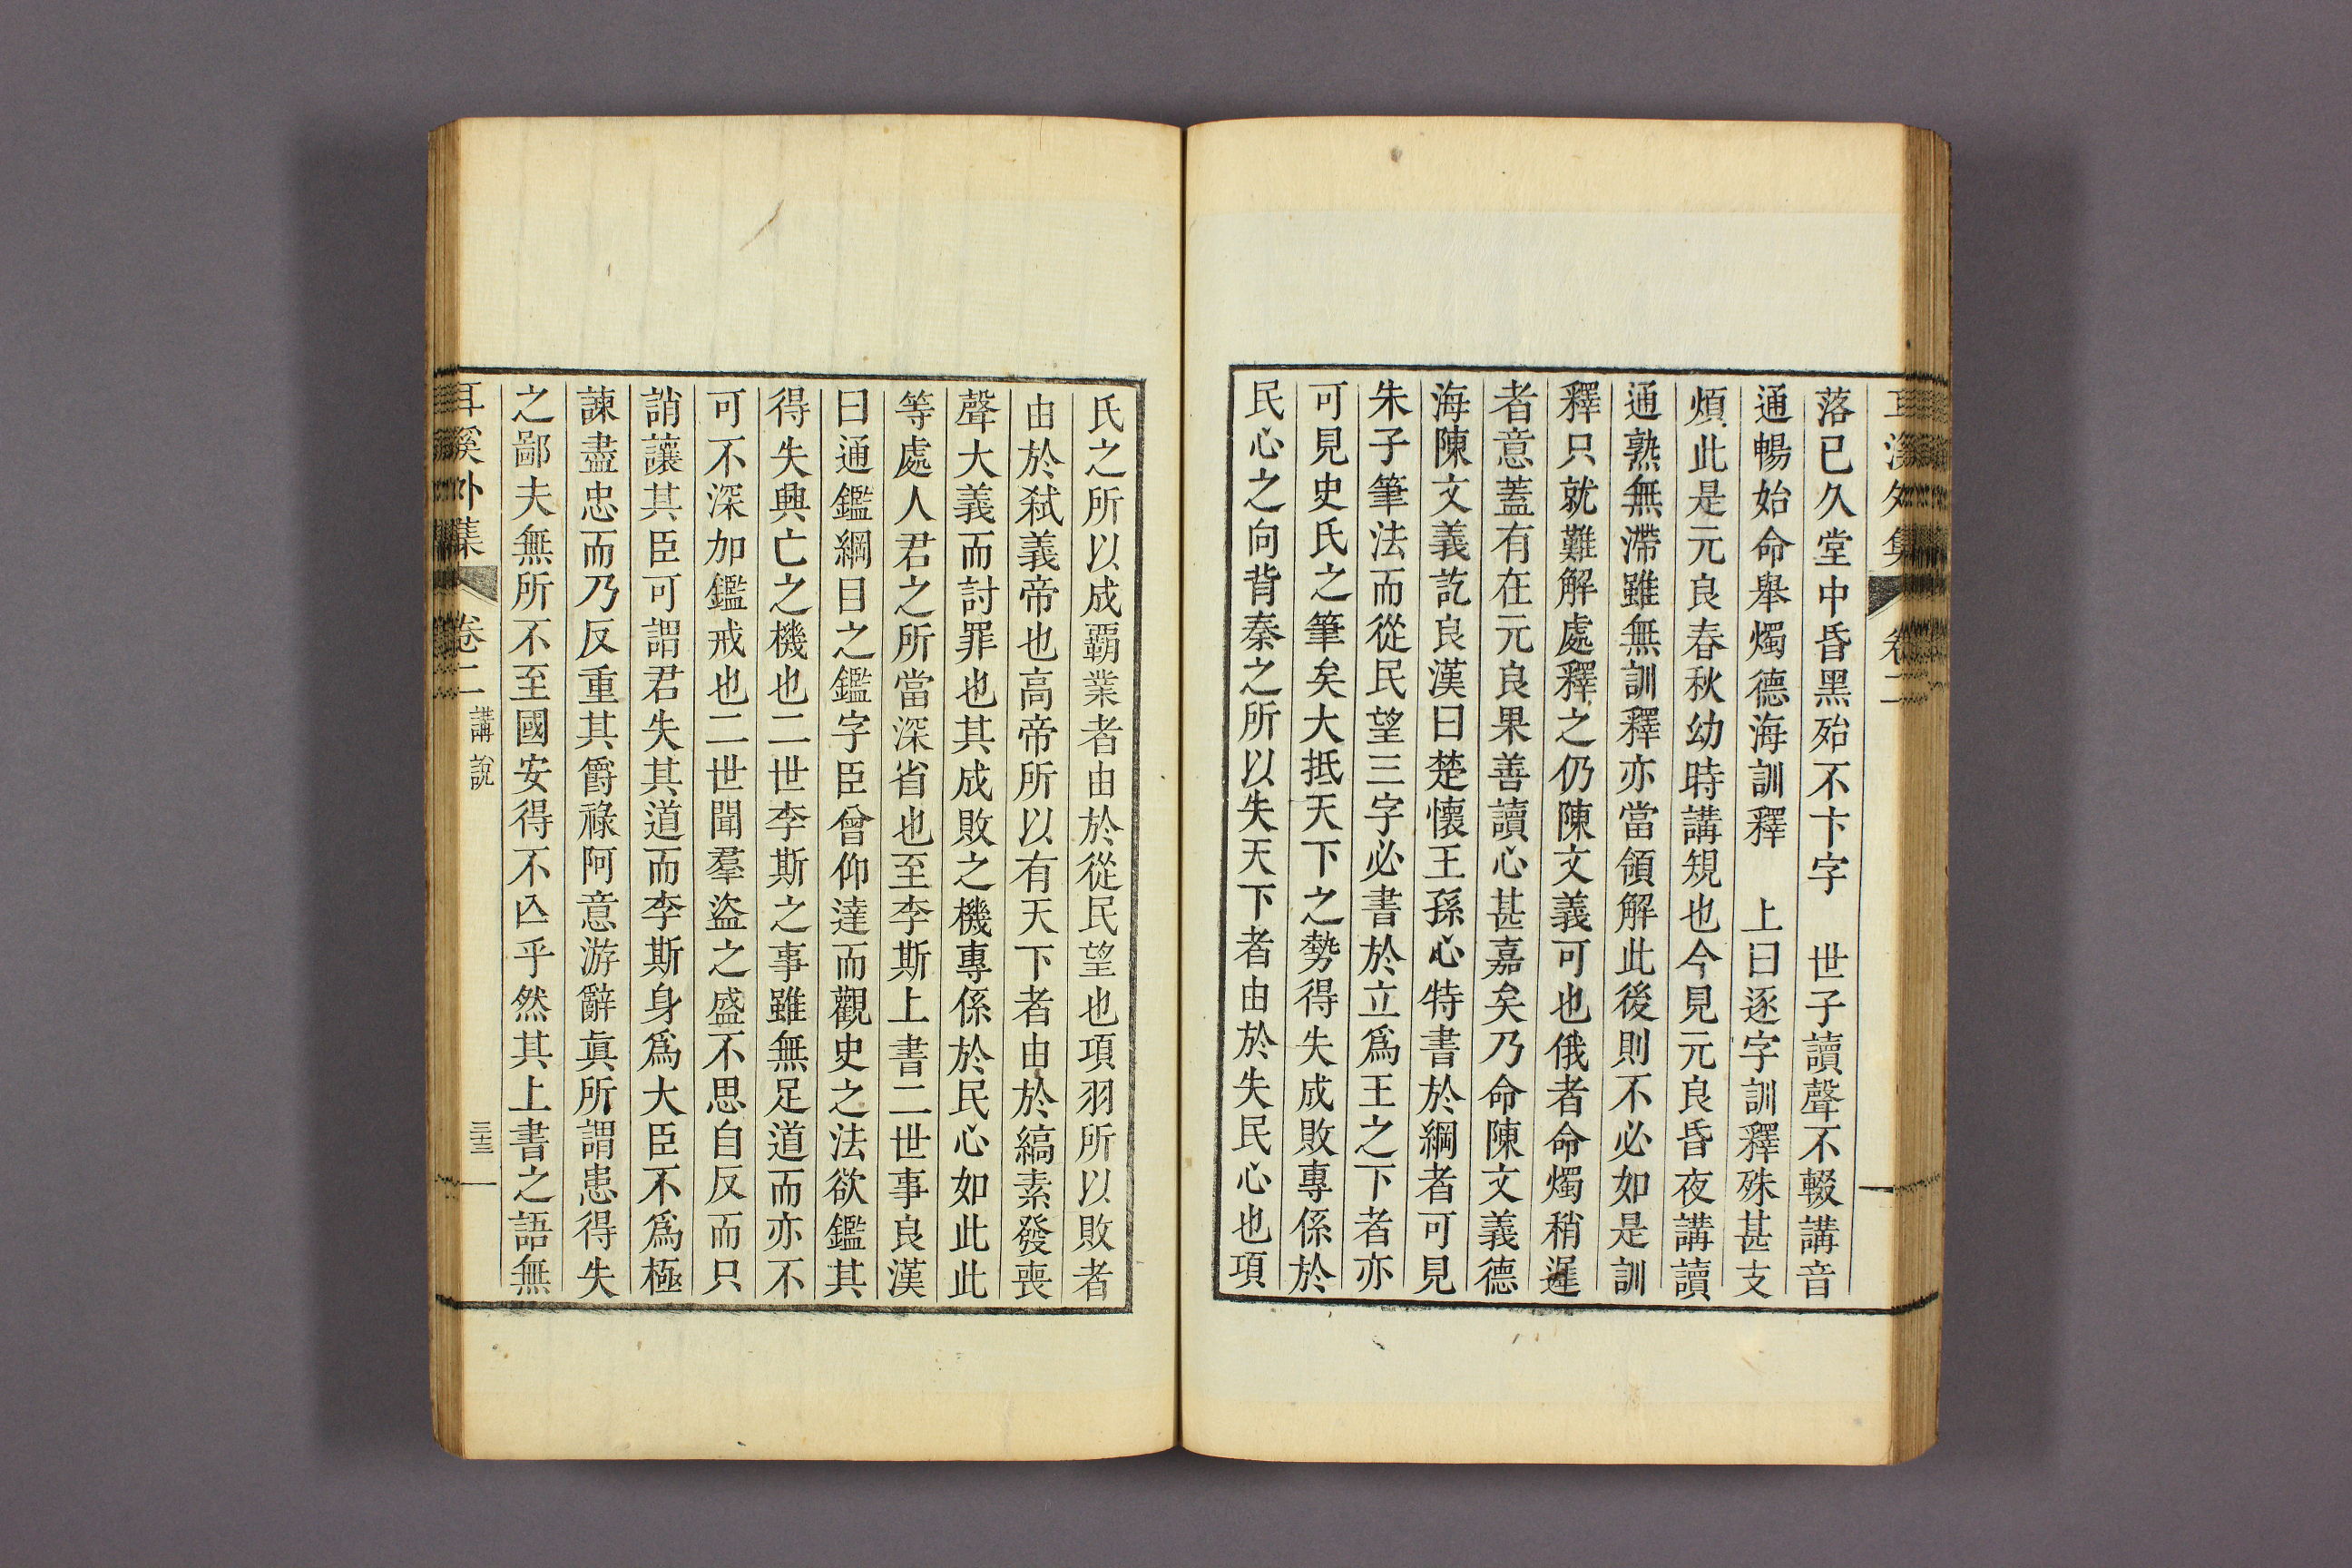 耳溪外集 卷二
落已久堂中昏黑殆不卞字 世子讀聲不輟講音
通暢始命舉燭德海訓釋 上曰逐字訓釋殊甚支
煩此是元良春秋幼時講規也今見元良昏夜講讀
通熟無滯雖無訓釋亦當領解此後則不必如是訓
釋只就難解處釋之仍陳文義可也俄者命燭稍遲
者意蓋有在元良果善讀心甚嘉矣乃命陳文義德
海陳文義訖良漢曰楚懷王孫心特書於綱者可見
朱子筆法而從民望三字必書於立爲王之下者亦
可見史氏之筆矣大抵天下之勢得失成敗專係於
民心之向背秦之所以失天下者由於失民心也項
氏之所以成覇業者由於從民望也項羽所以敗者
由於弑義帝也高帝所以有天下者由於縞素發喪
聲大義而討罪也其成敗之機專係於民心如此此
等處人君之所當深省也至李斯上書二世事良漢
曰通鑑綱目之鑑字臣曾仰達而觀史之法欲鑑其
得失興亡之機也二世李斯之事雖無足道而亦不
可不深加鑑戒也二世聞羣盜之盛不思自反而只
誚讓其臣可謂君失其道而李斯身爲大臣不爲極
諫盡忠而乃反重其爵祿阿意游辭眞所謂患得失
之鄙夫無所不至國安得不亾乎然其上書之語無
耳溪外集 卷二 講說 三十三